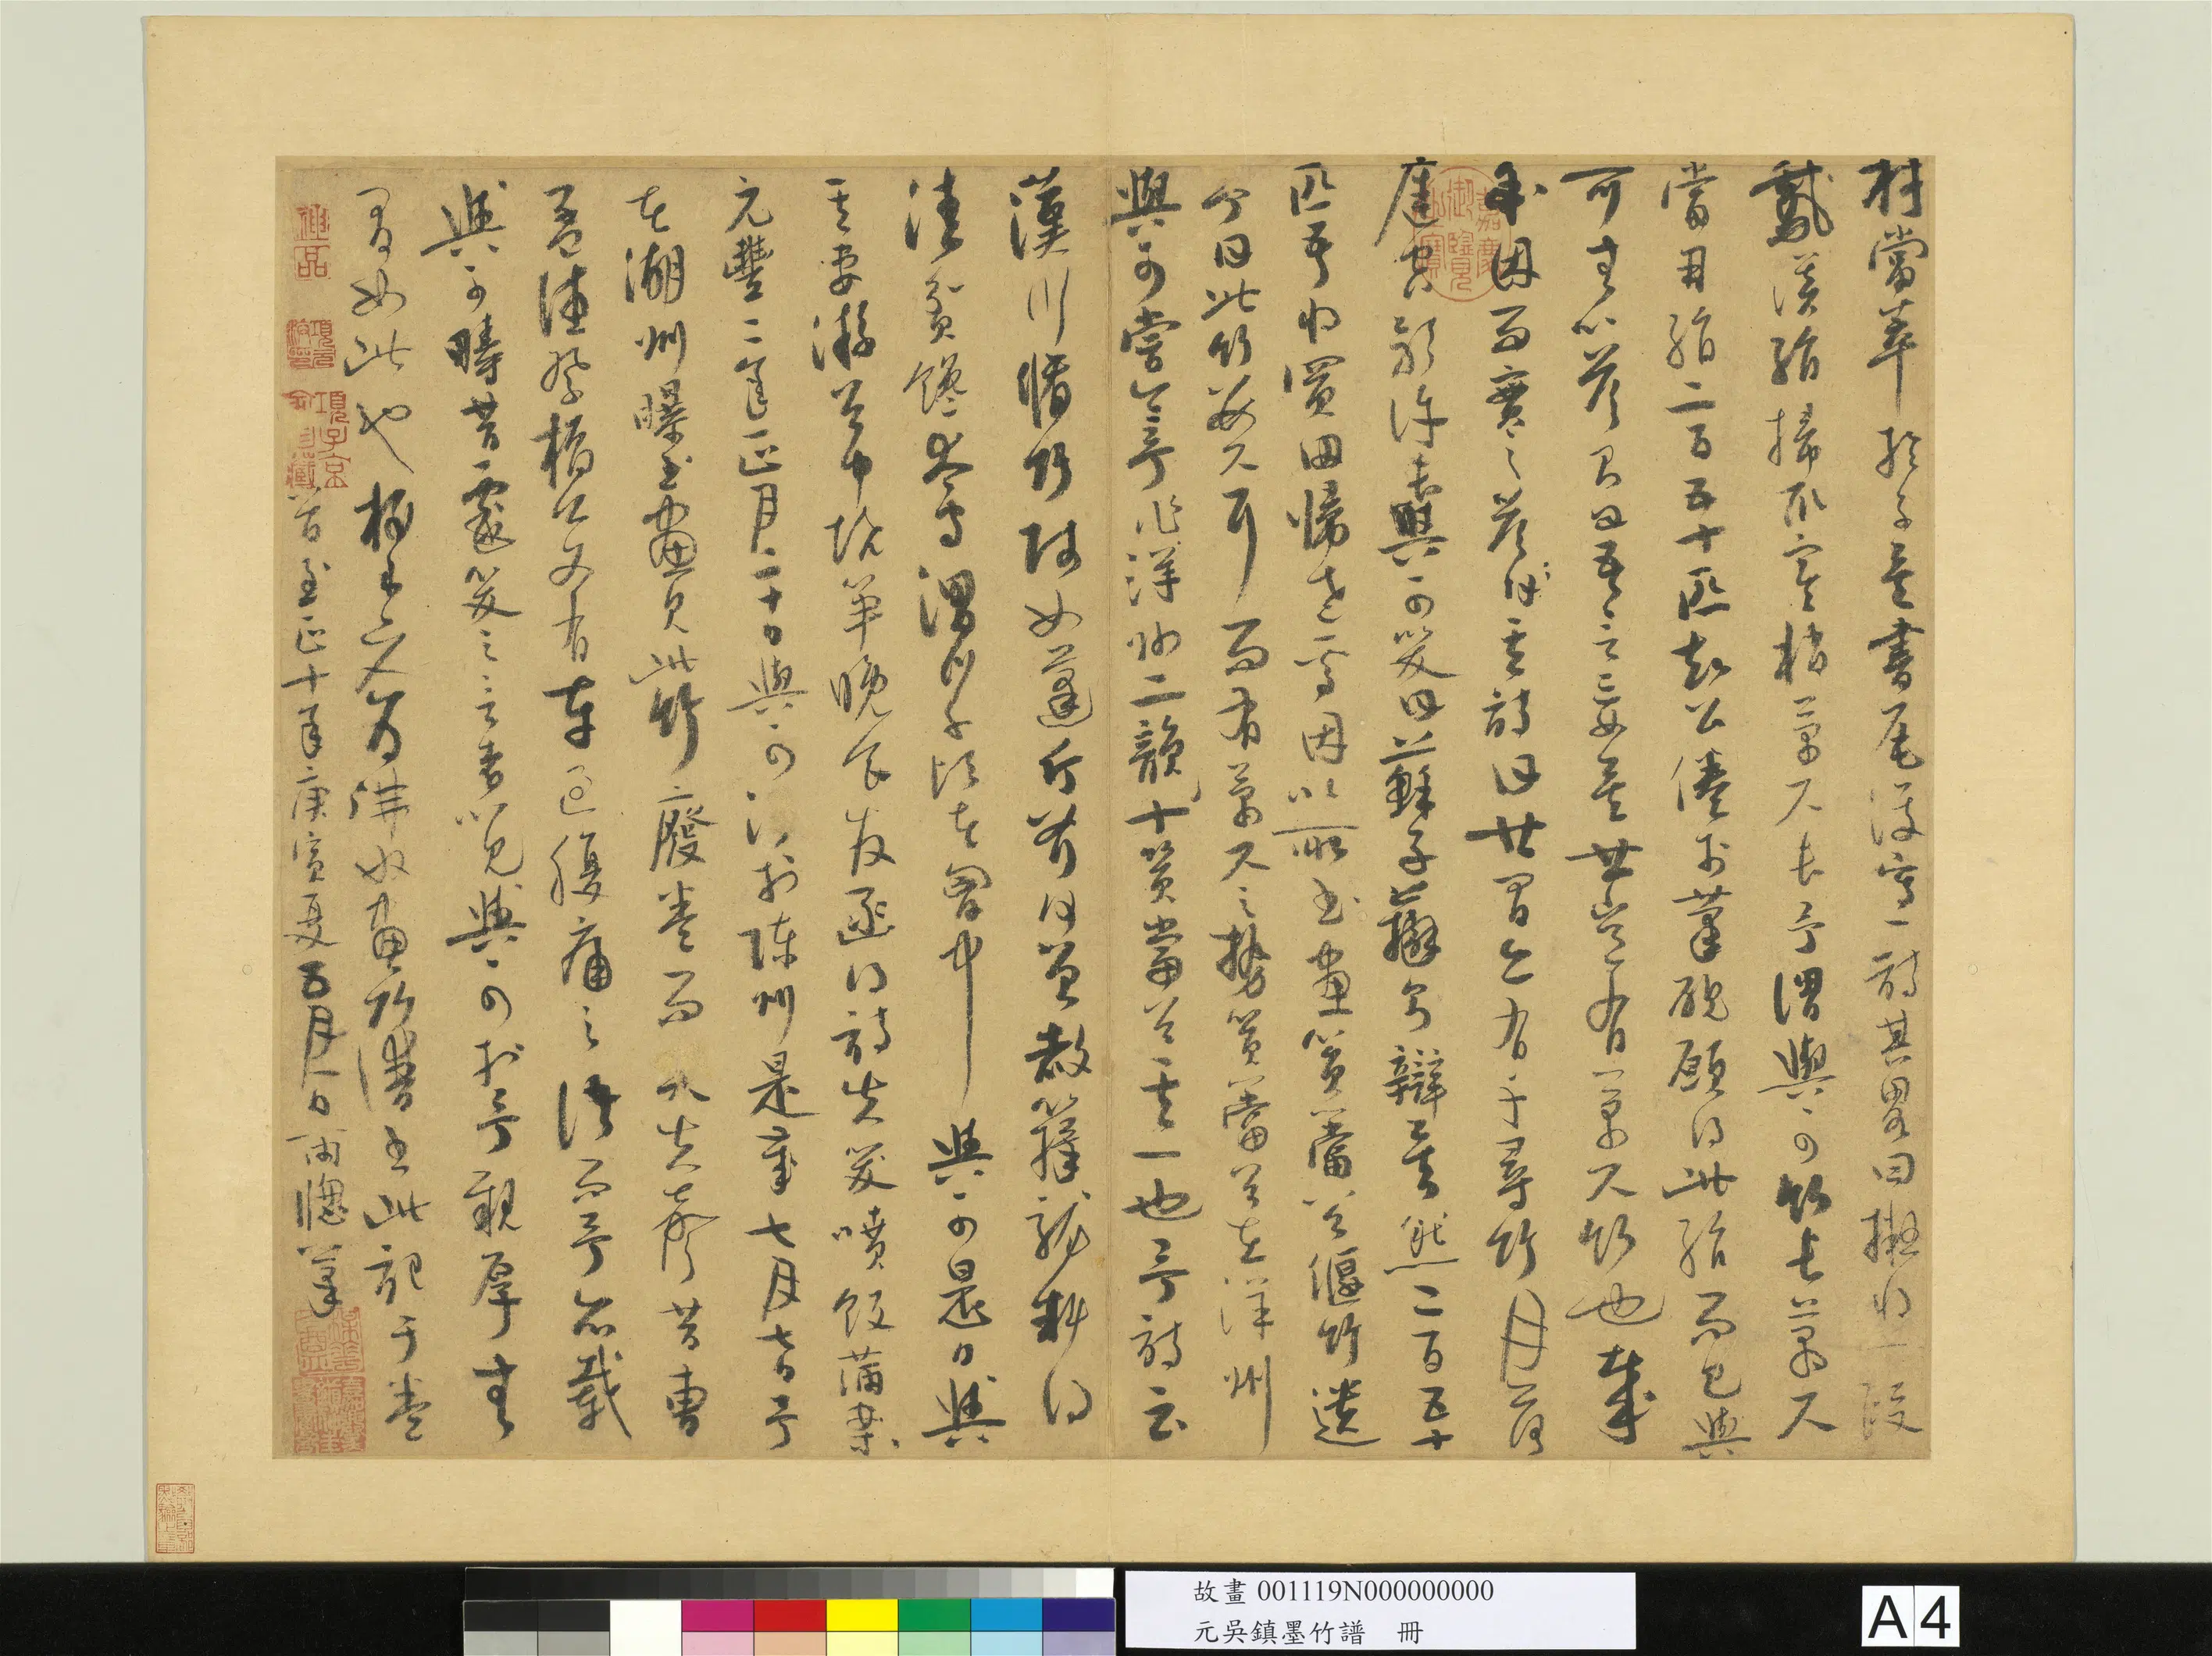 材當萃於子矣書尾復寫一詩其畧曰擬將一段
鵞溪絹掃取寒梢萬尺長予謂與可竹長萬尺
當用絹二百五十匹知公倦於筆硯願得此絹而已與
可無以答則曰吾言妄矣世豈有萬尺竹也哉
余因而實之答其詩曰世間亦有千尋竹月落
庭空影許長與可笑曰蘇子辯則辯矣然二百五十
匹吾將買田歸老焉因以所畫篔簹谷偃竹遺
余曰此竹數尺耳而有萬尺之勢篔簹谷在洋州
與可嘗令予作洋州二韻十篔簹谷其一也予詩云
漢川脩竹賤如蓬斤斧何曾赦籜龍料得
清貧饞太守渭川千畝在胸中與可是日與
其妻游谷中燒筍晚食發函得詩失笑噴飯滿案
元豐二年正月二十日與可沒於陳州是歲七月七日予
在湖州曝書畫見此竹廢卷而哭失聲昔曹
孟德祭橋公文有車過腹痛之語而予亦載
與可疇昔戲笑之言者以見與可於予親厚無
間如此也為佛奴畫竹譜至此記于卷
首至正十年庚寅夏五月一日雨牕筆
嘉慶御覽之寶
項子京
故畫 001119N000000000
元吳鎮墨竹譜 冊
A4